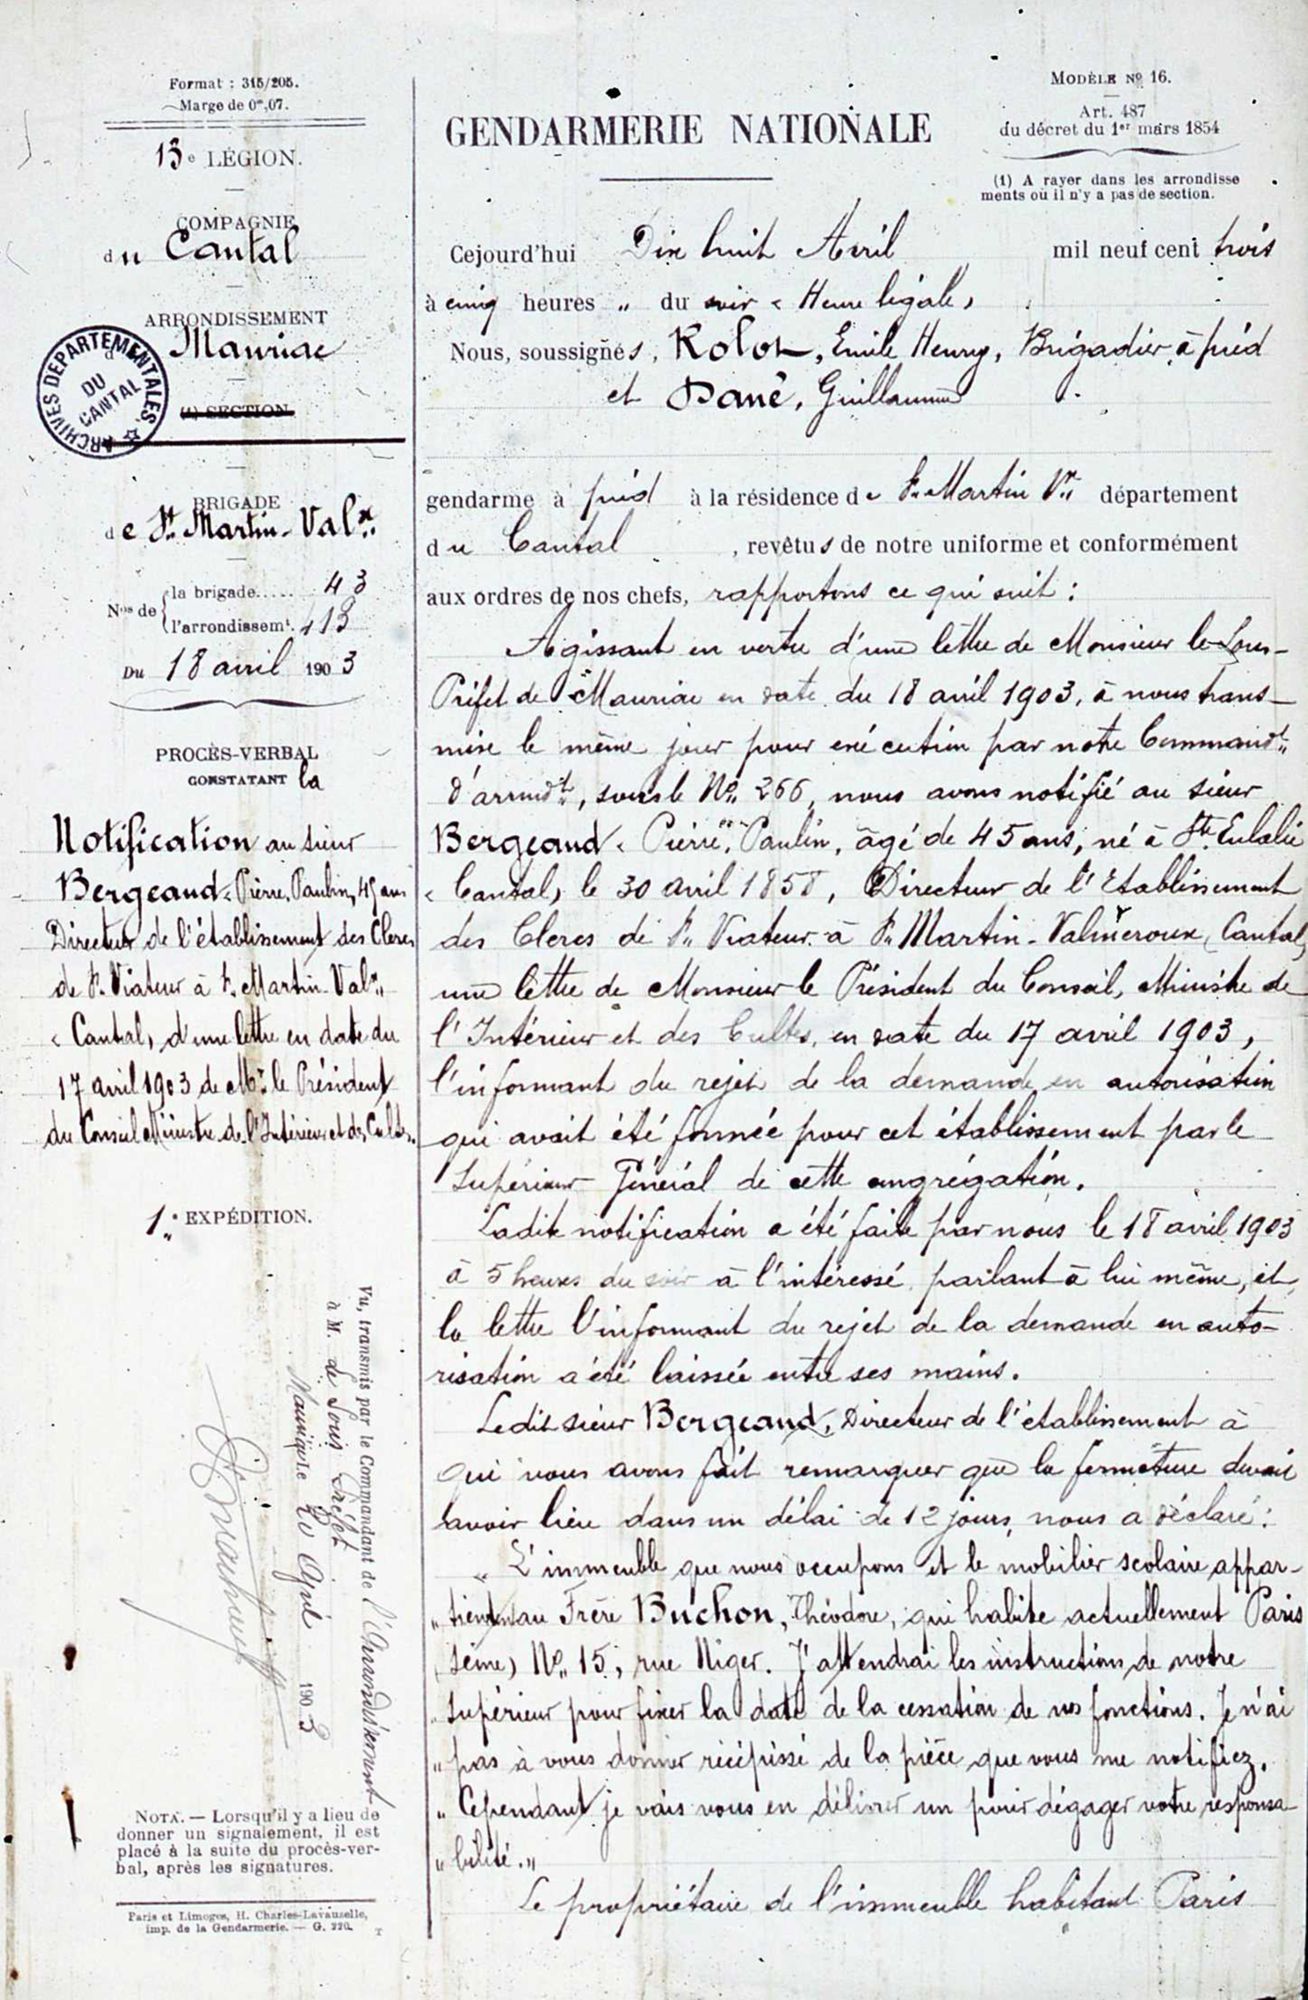 Format : 315/205.
Marge de 0m,07.
13e LÉGION.
COMPAGNIE
du Cantal
ARRONDISSEMENT
d Mauriac
ARCHIVES DEPARTEMENTALES DU CANTAL
(1) SECTION
BRIGADE
de St Martin-Valx.
Nos de la brigade..... 43
l'arrondissemt. 413
Du 18 avril 1903
PROCÈS-VERBAL
CONSTATANT la
Notification au sieur
Bergeaud « Pierre, Paulin, 45 ans
Directeur de l'établissement des Clercs
de St Viateur à St Martin-Valx.
« Cantal, d'une lettre en date du
17 avril 1903 de Mr le Président
du Conseil Ministre de l'Intérieur et des Cultes.
1e EXPÉDITION.
Vu, transmis par le Commandant de l'Arrondissement
à M. le Sous Préfet
Mauriac, le 20 Avril 1903
NOTA. — Lorsqu'il y a lieu de
donner un signalement, il est
placé à la suite du procès-ver-
bal, après les signatures.
Paris et Limoges, H. Charles-Lavauzelle,
imp. de la Gendarmerie. — G. 220.
MODÈLE No 16.
Art. 487
du décret du 1er mars 1854
(1) A rayer dans les arrondisse
ments où il n'y a pas de section.
GENDARMERIE NATIONALE
Cejourd'hui Dix huit Avril mil neuf cent trois
à cinq heures „ du soir « Heure légale,
Nous, soussignés, Kolot, Emile Henry, Brigadier à pied
et Dané, Guillaume
gendarme à pied à la résidence de St Martin Vx département
du Cantal , revêtus de notre uniforme et conformément
aux ordres de nos chefs, rapportons ce qui suit :
Agissant en vertu d'une lettre de Monsieur le Sous-
Préfet de Mauriac en date du 18 avril 1903, à nous trans-
mise le même jour pour exécution par notre Commandt
d'arrondt, sous le No 266, nous avons notifié au sieur
Bergeaud « Pierre, Paulin, âgé de 45 ans, né à Ste Eulalie
« Cantal, le 30 avril 1858, Directeur de l'Etablissement
des Clercs de St Viateur à St Martin-Valmeroux, (Cantal,
une lettre de Monsieur le Président du Conseil, Ministre de
l'Intérieur et des Cultes, en date du 17 avril 1903,
l'informant du rejet de la demande en autorisation
qui avait été formée pour cet établissement par le
Supérieur Général de cette congrégation.
Ladite notification a été faite par nous le 18 avril 1903
à 5 heures du soir à l'intéressé, parlant à lui même, et
la lettre l'informant du rejet de la demande en auto-
risation a été laissée entre ses mains.
Ledit sieur Bergeaud, Directeur de l'établissement à
qui nous avons fait remarquer que la fermeture devait
avoir lieu dans un délai de 12 jours, nous a déclaré :
„ L'immeuble que nous occupons et le mobilier scolaire appar-
„ tiennent au Frère Buchon, Théodore, qui habite actuellement Paris
(Seine) No 15, rue Niger. J'attendrai les instructions de notre
„ Supérieur pour fixer la date de la cessation de nos fonctions. Je n'ai
„ pas à vous donner récépissé de la pièce que vous me notifiez.
„ Cependant je vais vous en délivrer un pour dégager votre responsa
„ bilité. „
Le propriétaire de l'immeuble habitant Paris